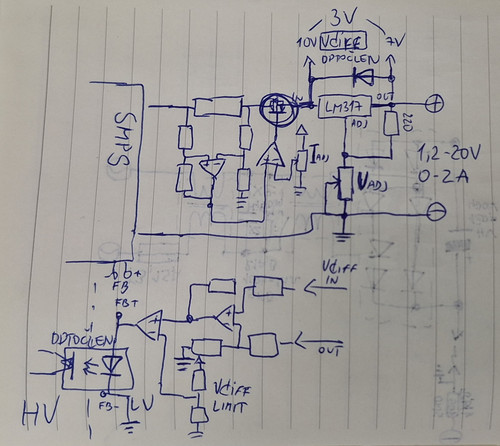 3V
10V Vdiff 7V
OPTOCLEN
IN LM317 OUT
ADJ
220
SMPS
IADJ
VADJ
1,2-20V
0-2A
FB
FB+
Vdiff
IN
OUT
OPTOCLEN
Vdiff
LIMIT
FB-
HV LV